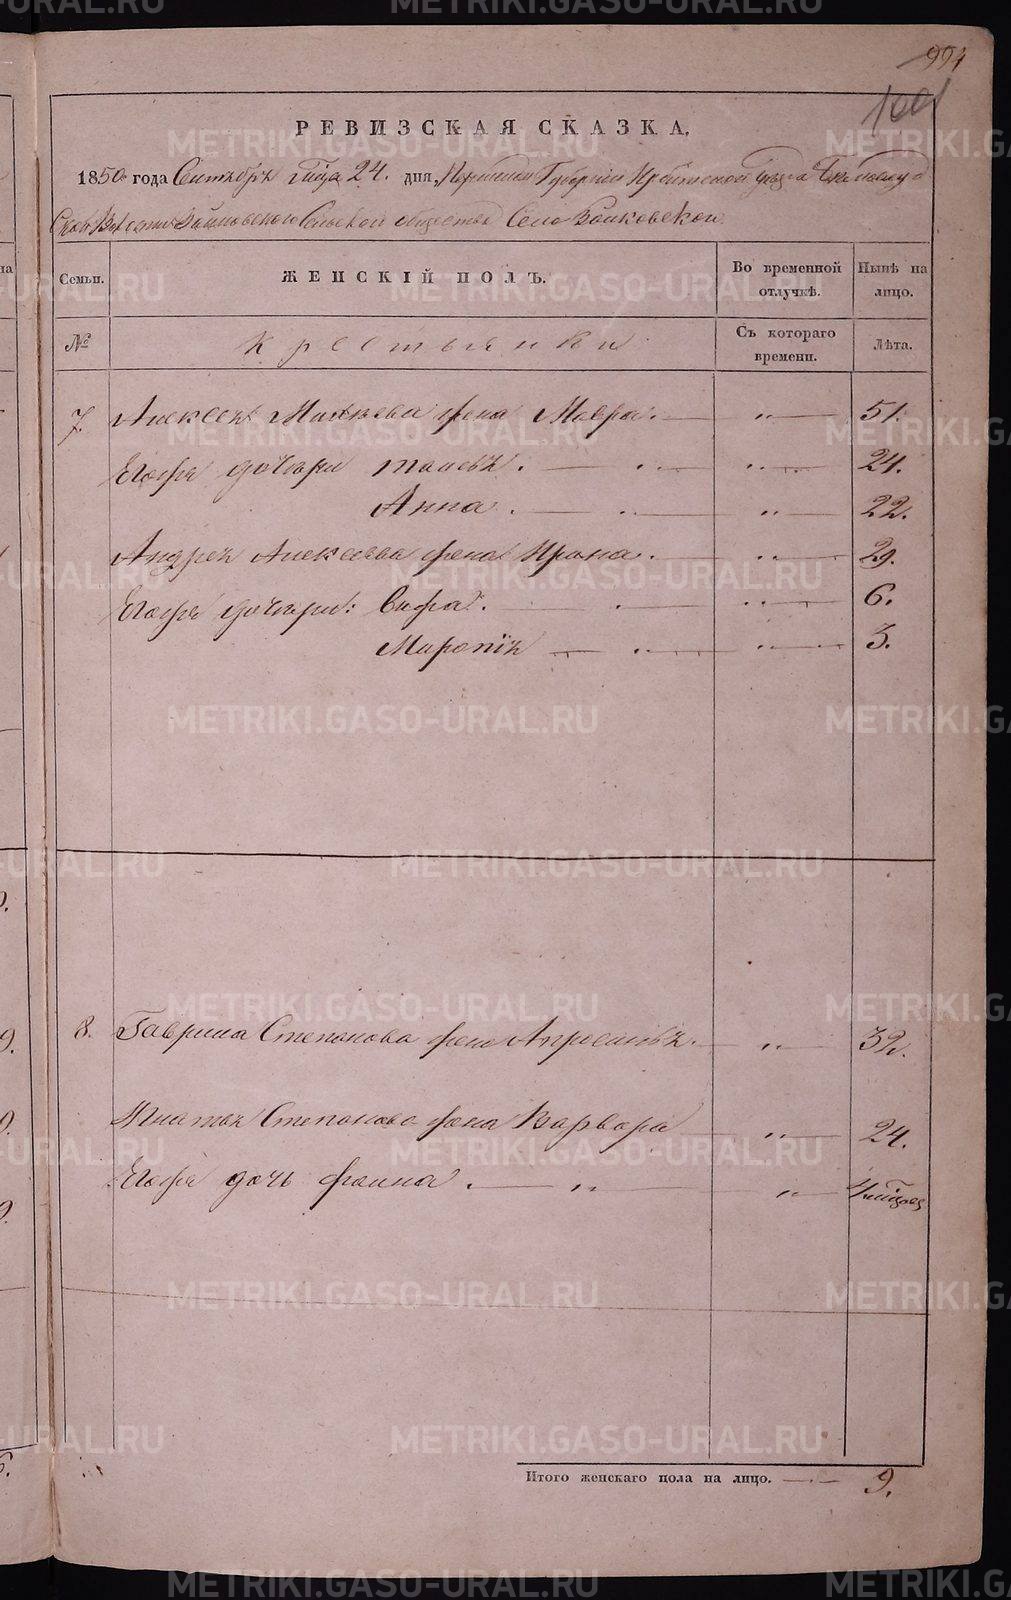 994
1001
РЕВИЗСКАЯ СКАЗКА.
1850 года Сентября мца 24. дня, Пермской Губернiи Ирбитской уезда
Волости Байковского Сельской общества Село Байковской
Семьи. ЖЕНСКIЙ ПОЛЪ. Во временной отлучкѣ. Нынѣ на лицо.
№ Крестьянки Съ котораго времени. Лѣта.
7. Алексѣя Матвѣева жена Мавра. — „ — 51.
Его же дочери — „ — „ — 24.
Анна. — „ — „ — 22.
Андрея Алексѣева жена Ирина. — „ — 29.
Его же дочери: — „ — „ — 6.
Маропiя — „ — „ — 3.
8. Гаврила Степанова жена Апросинья. — „ — 32.
Игнатья Степанова жена Варвара — „ — 24.
Его же дочь фаина. — „ — „ —
Итого женскаго пола на лицо. — 9.
METRIKI.GASO-URAL.RU